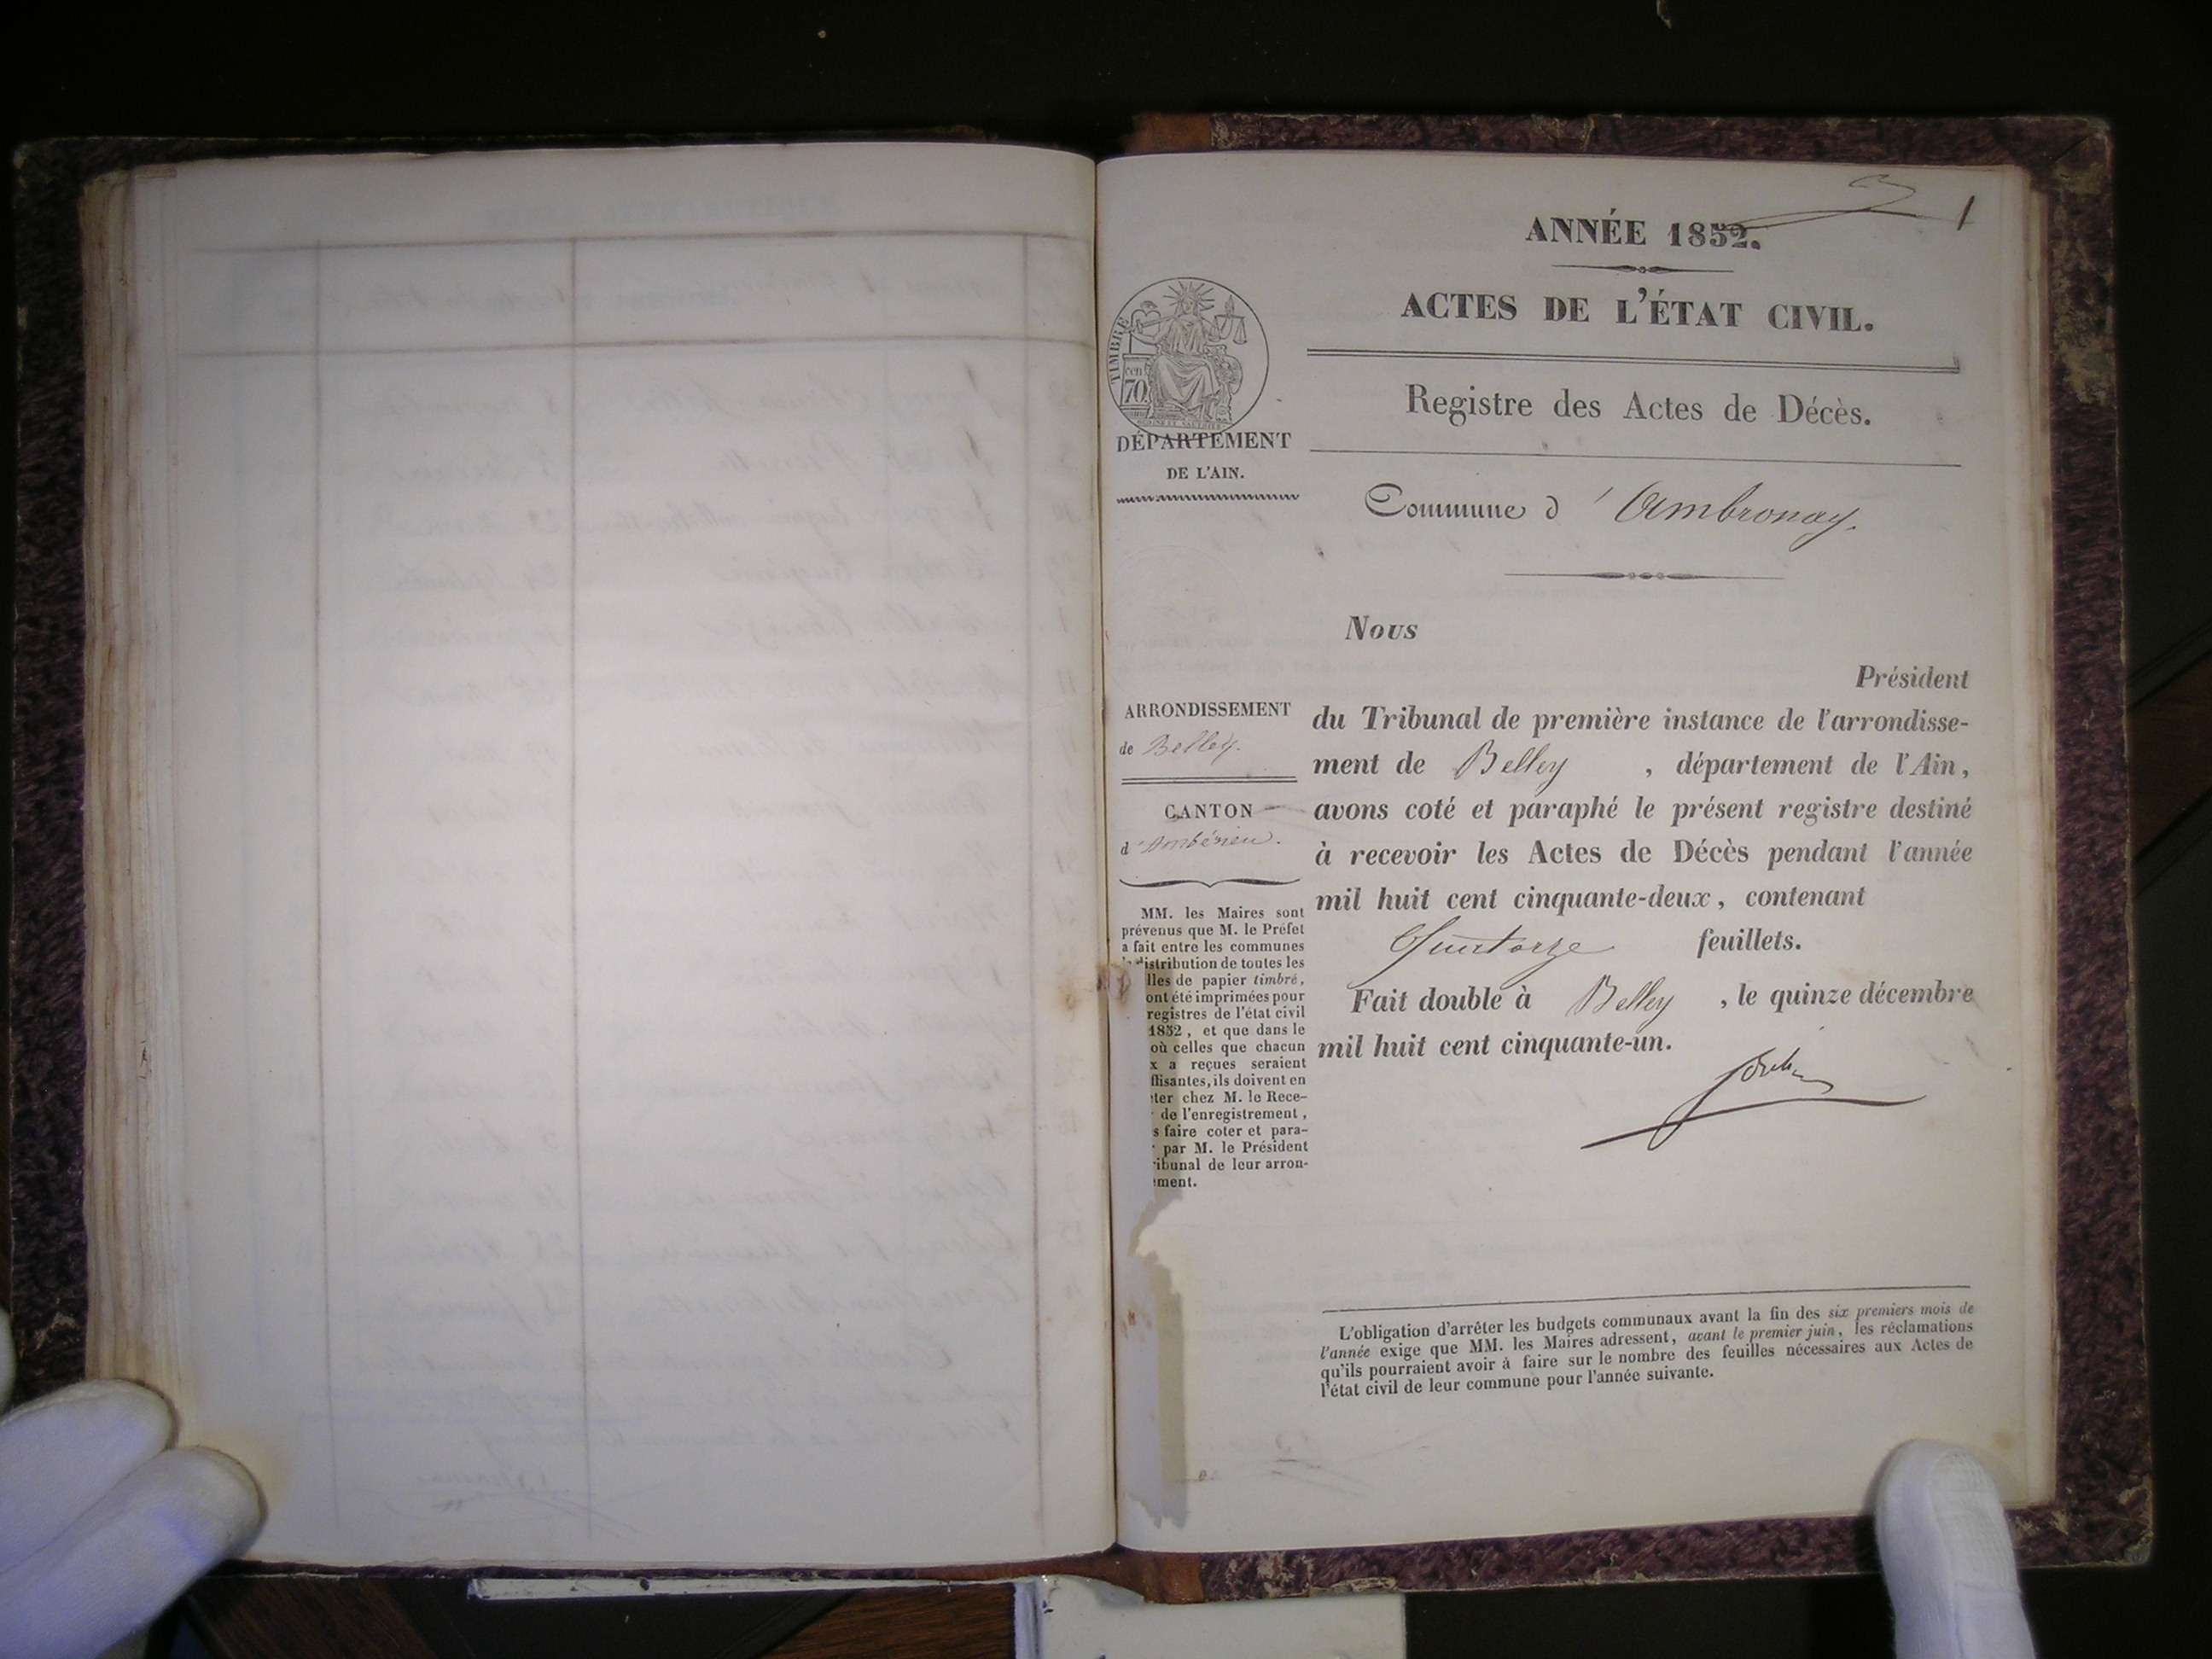 1
ANNÉE 1852.
ACTES DE L'ÉTAT CIVIL.
Registre des Actes de Décès.
TIMBRE
cent 70
DÉPARTEMENT
DE L'AIN.
Commune d'Ambronay.
Nous
Président
du Tribunal de première instance de l'arrondisse-
ment de Belley , département de l'Ain,
avons coté et paraphé le présent registre destiné
à recevoir les Actes de Décès pendant l'année
mil huit cent cinquante-deux, contenant
Quatorze feuillets.
Fait double à Belley , le quinze décembre
mil huit cent cinquante-un.
ARRONDISSEMENT
de Belley.
CANTON
d'Ambérieu.
MM. les Maires sont
prévenus que M. le Préfet
a fait entre les communes
distribution de toutes les
lles de papier timbré,
ont été imprimées pour
registres de l'état civil
1852, et que dans le
où celles que chacun
x a reçues seraient
ffisantes, ils doivent en
ter chez M. le Rece-
de l'enregistrement,
s faire coter et para-
par M. le Président
ribunal de leur arron-
ement.
L'obligation d'arrêter les budgets communaux avant la fin des six premiers mois de
l'année exige que MM. les Maires adressent, avant le premier juin, les réclamations
qu'ils pourraient avoir à faire sur le nombre des feuilles nécessaires aux Actes de
l'état civil de leur commune pour l'année suivante.